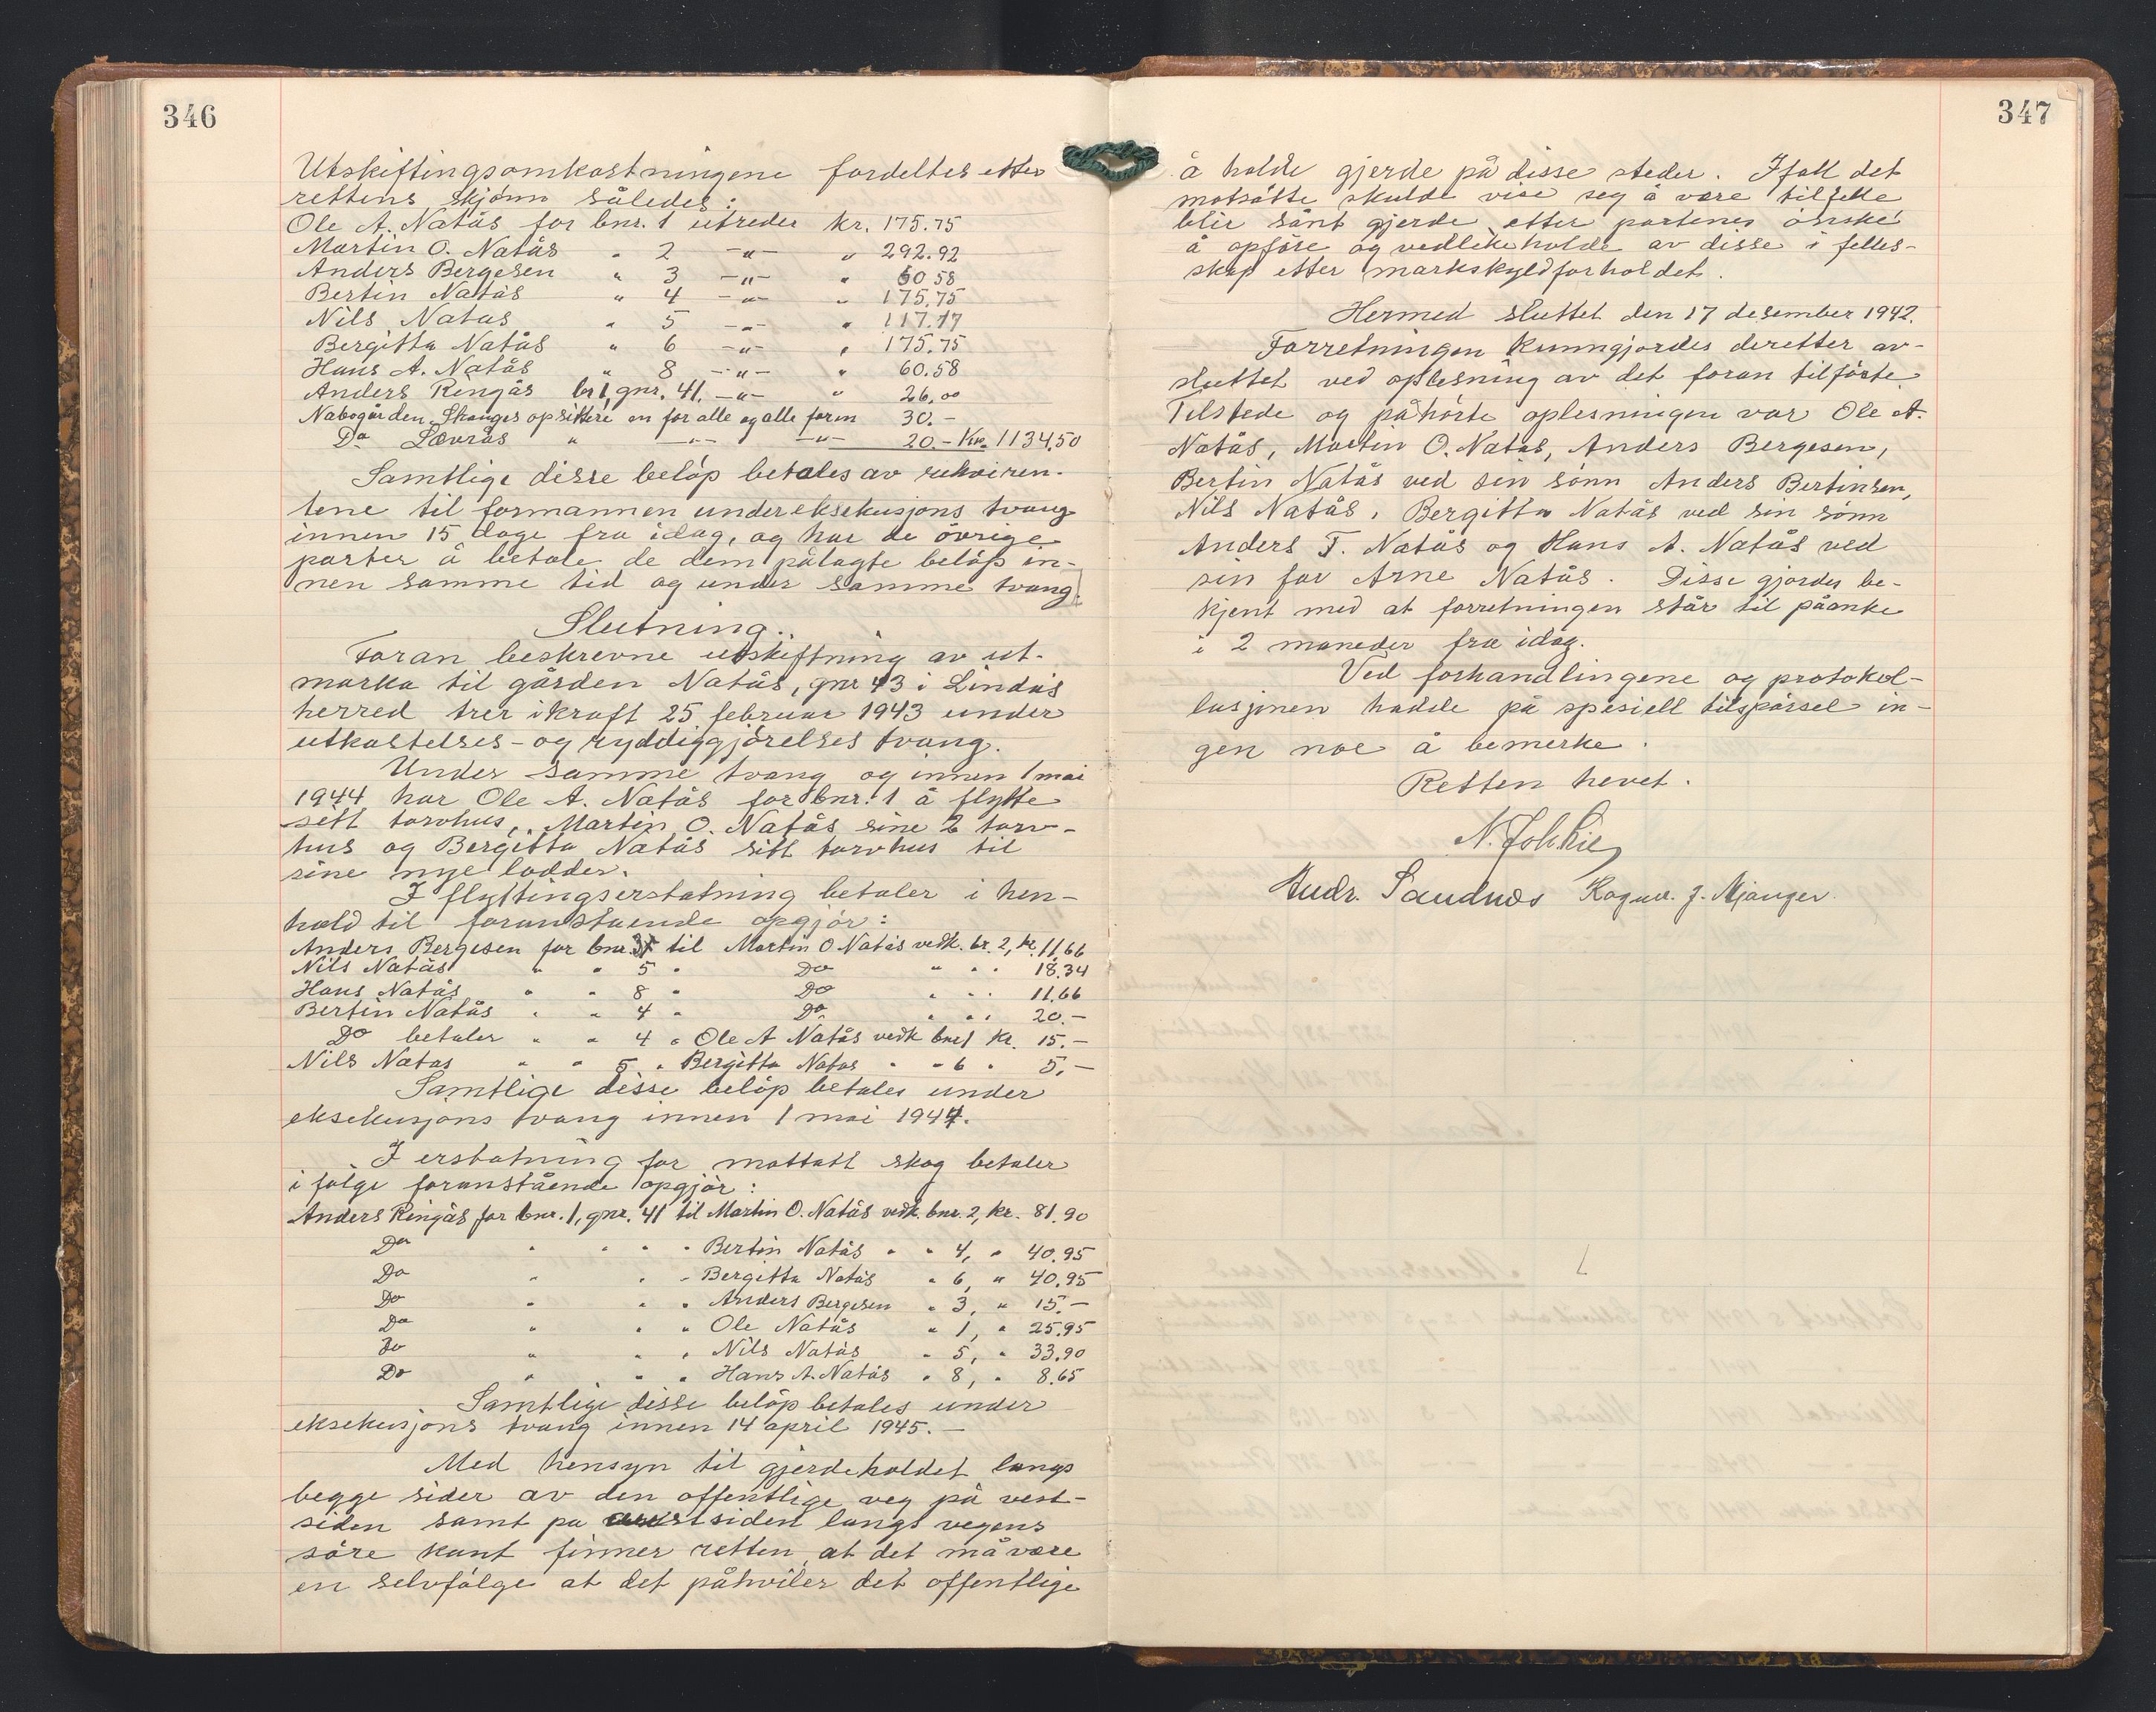 346
Utskiftingsomkostningene fordeltes etter
rettens skjønn således:
Ole A. Natås for bnr. 1 utreder kr. 175.75
Martin O. Natås " 2 -"- " 292.92
Anders Bergesen " 3 -"- " 60.58
Bertin Natås " 4 -"- " 175.75
Nils Natås " 5 -"- " 117.17
Bergitta Natås " 6 -"- " 175.75
Hans A. Natås " 8 -"- " 60.58
Anders Ringås br 1, gnr. 41. -"- " 26.00
Nabogården Skanges opsittere en for alle og alle for en 30.-
Do Lævrås " -"- -"- 20.- Kr. 1134,50
Samtlige disse beløp betales av rekviren-
tene til formannen under eksekusjons tvang
innen 15 dage fra idag, og har de øvrige
parter å betale de dem pålagte beløp in-
nen samme tid og under samme tvang.
Slutning.
Foran beskrevne utskiftning av ut-
marka til gården Natås, gnr 43 i Lindås
herred trer ikraft 25 februar 1943 under
utkastelses- og ryddiggjørelses tvang.
Under samme tvang og innen 1 mai
1944 har Ole A. Natås for bnr. 1 å flytte
sitt torvhus, Martin O. Natås sine 2 torv-
hus og Bergitta Natås sitt torvhus til
sine nye lodder.
I flyttingserstatning betaler i hen-
hold til foranstående opgjør:
Anders Bergesen for bnr. 3 til Martin O Natås vedk. br. 2, kr. 11,66
Nils Natås " " 5 " Do " " " 18.34
Hans Natås " " 8 " Do " " " 11.66
Bertin Natås " " 4 " Do " " " 20.-
Do betaler " " 4 " Ole A Natås vedk bnr 1 kr. 15.-
Nils Natås " " 5 " Bergitta Natås " " 6 " 5.-
Samtlige disse beløp betales under
eksekusjons tvang innen 1 mai 1944.
I erstatning for mottatt skog betaler
i følge foranstående opgjør:
Anders Ringås for bnr. 1, gnr. 41 til Martin O. Natås vedk. bnr. 2, kr. 81.90
Do " " " " Bertin Natås " " 4, " 40.95
Do " " " Bergitta Natås " 6, " 40.95
Do " " " Anders Bergesen " 3, " 15.-
Do " " " Ole Natås " 1, " 25.95
Do " " " Nils Natås " 5, " 33.90
Do " " " Hans A. Natås " 8, " 8.65
Samtlige disse beløp betales under
eksekusjons tvang innen 14 april 1945.-
Med hensyn til gjerdeholdet langs
begge sider av den offentlige veg på vest-
siden samt på siden langs vegens
søre kant finner retten at det må være
en selvfølge at det påhviler det offentlige
347
å holde gjerde på disse steder. Ifall det
motsatte skulde vise seg å være tilfelle
blir sånt gjerde etter partenes ønske
å opføre og vedlikeholde av disse i felles-
skap etter markskyldforholdet.
Hermed sluttet den 17 desember 1942.
Forretningen kunngjordes deretter av-
sluttet ved oplesning av det foran tilførte
Tilstede og påhørte oplesningen var Ole A.
Natås, Martin O. Natås, Anders Bergesen,
Bertin Natås ved sin sønn Anders Bertinsen,
Nils Natås, Bergitta Natås ved sin sønn
Anders T. Natås og Hans A. Natås ved
sin far Arne Natås. Disse gjordes be-
kjent med at forretningen står til påanke
i 2 maneder fra idag.
Ved forhandlingene og protokol-
lasjonen hadde på spesiell tilspørsel in-
gen noe å bemerke.
Retten hevet.
Andr. Sandnes Ragnv. J. Mjanger.